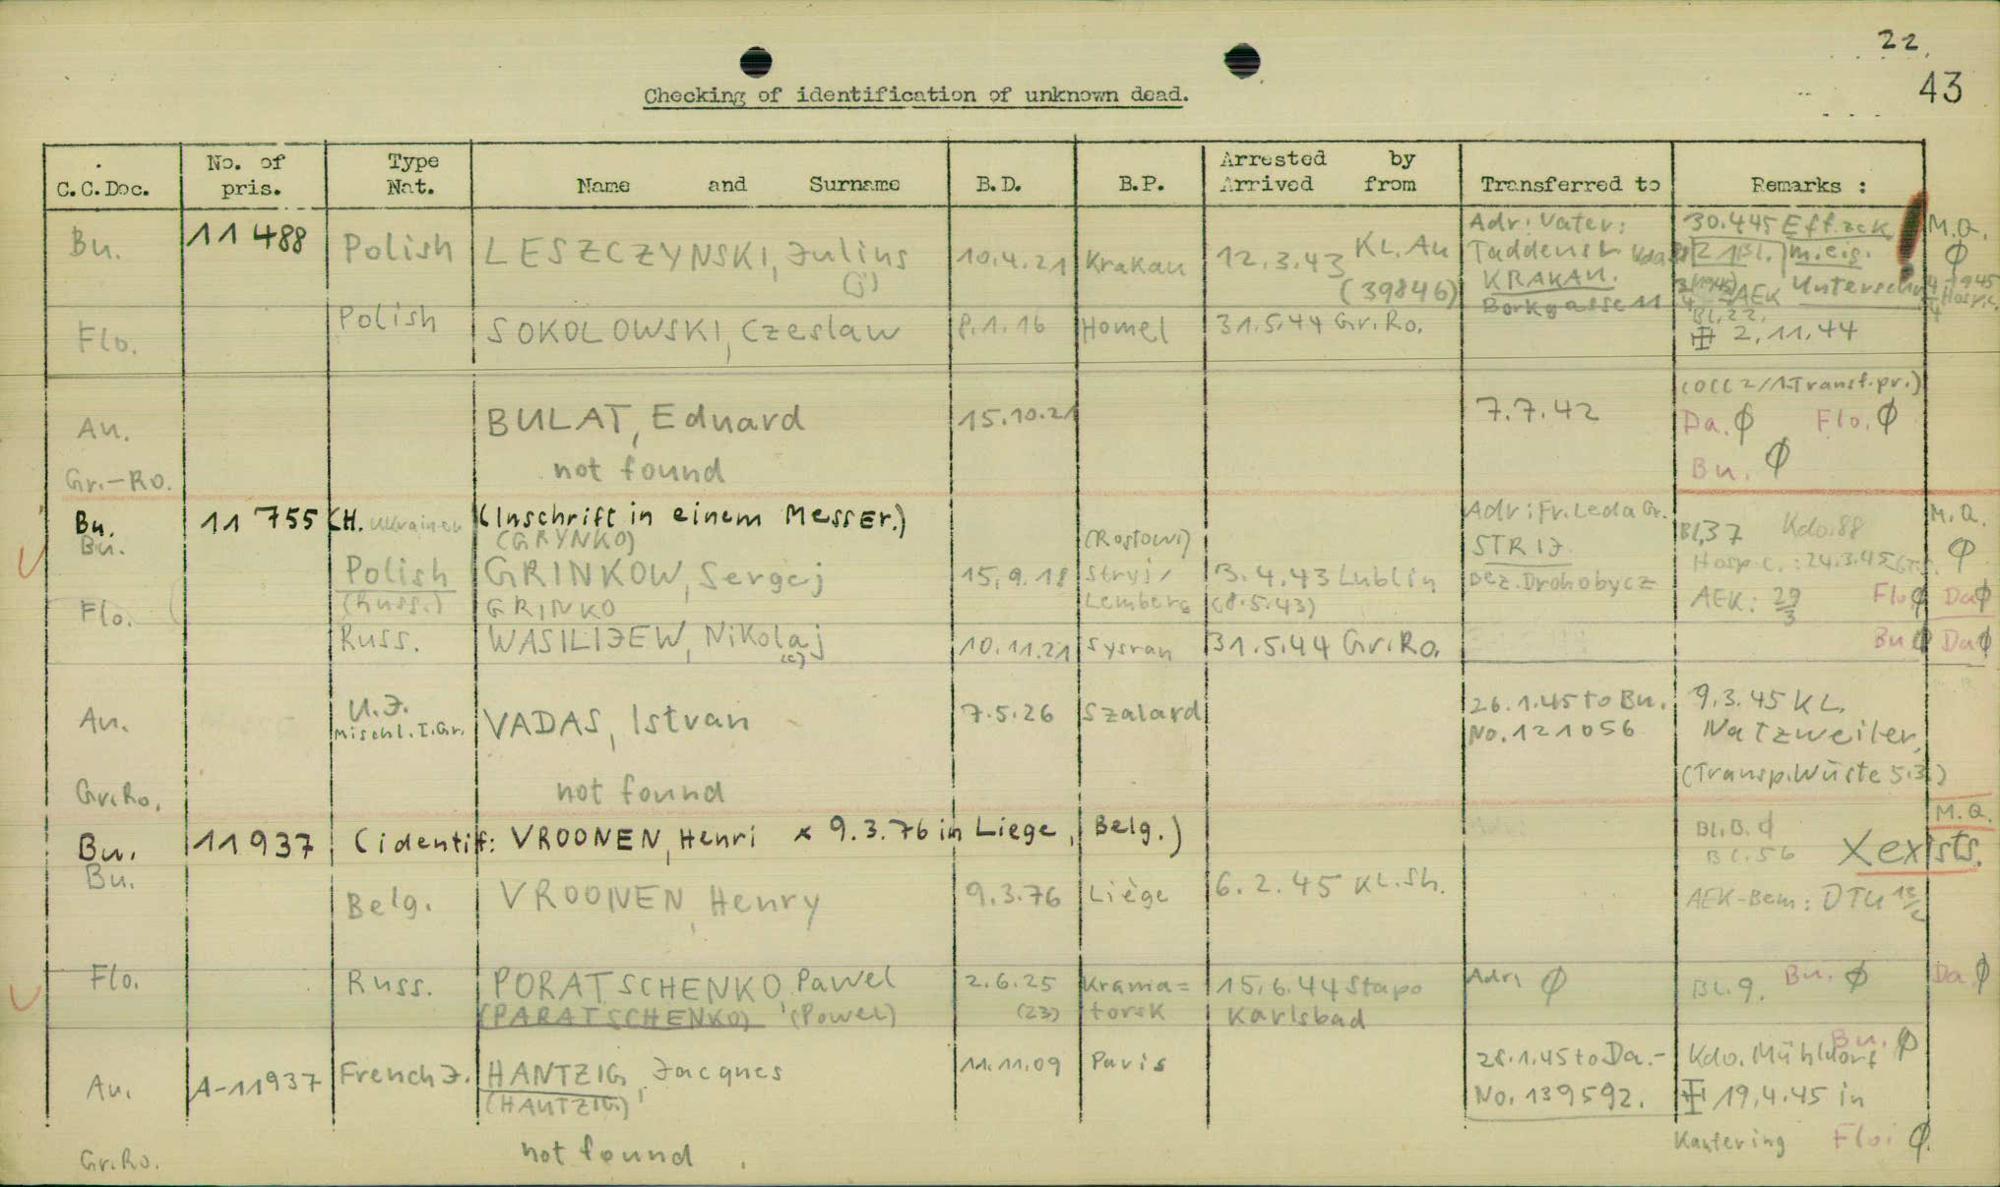 22.
43
Checking of identification of unknown dead.
C.C.Doc. No. of pris. Type Nat. Name and Surname B.D. B.P. Arrested by Arrived from Transferred to Remarks :
Bu. 11 488 Polish LESZCZYNSKI, Julius (j) 10.4.21 Krakau 12.3.43 KL. Au (39846) Adr: Vater: KRAKAU. Borkgasse 11 30.4.45 Eff.zck m.eig. Unterschr. AEK M.Q. Ø
Flo. Polish SOKOLOWSKI, Czeslaw 8.1.16 Homel 31.5.44 Gr.Ro. Bl.22. 2.11.44
Au. BULAT, Eduard 15.10.21 7.7.42 (OCC 2/1.Transf.pr.) Da. Ø Flo. Ø
Gr.-Ro. not found Bu. Ø
Bu. 11 755 (H. Ukrainer (Inschrift in einem Messer.) Adr: Fr. Leda Gr. M.Q.
Bu. (GRYNKO) (Rostow) STRIJ Bl.37 Kdo.88 Ø
Polish GRINKOW, Sergej 15.9.18 Stryj/ 3.4.43 Lublin Bez. Drohobycz Hosp.c.: 24.3.45
Flo. (Russ.) GRINKO Lemberg (8.5.43) AEK: 29/3 Flo Ø Da Ø
Russ. WASILIJEW, Nikolaj 10.11.21 Sysran 31.5.44 Gr.Ro. Bu Ø Da Ø
Au. U.J. Mischl.I.Gr. VADAS, Istvan 7.5.26 Szalard 26.1.45 to Bu. No. 121056 9.3.45 KL. Natzweiler,
Gr.Ro. not found (Transp.Wüste 5.3.)
Bu. 11937 (identif: VROONEN, Henri × 9.3.76 in Liege, Belg.) Bl.56 X exists. M.Q.
Bu. Belg. VROONEN, Henry 9.3.76 Liège 6.2.45 KL.Sh. AEK-Bem:
Flo. Russ. PORATSCHENKO, Pawel 2.6.25 Krama= 15.6.44 Stapo Adr. Ø Bl.9. Bu. Ø Da Ø
(PARATSCHENKO) (Powel) (23) torsk Karlsbad
Au. A-11937 French J. HANTZIG, Jacques 11.11.09 Paris 28.1.45 to Da.- Kdo. Mühldorf Bu. Ø
(HAUTZIG) No. 139592. 19.4.45 in
Gr.Ro. not found Kaufering Flo: Ø